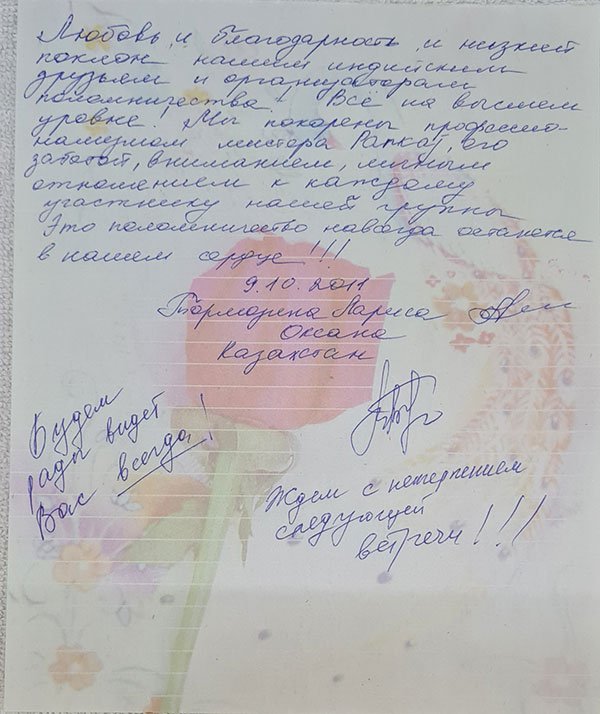 Любовь, и благодарность, и низкий
поклон нашим индийским
друзьям и организаторам
паломничества! Всё на высшем
уровне! Мы покорены профессио-
нализмом мистера Panкaj, его
заботой, вниманием, милым
отношением к каждому
участнику нашей группы
Это паломничество навсегда останется
в нашем сердце!!!
9.10.2011
Тормозина Лариса
Оксана
Казахстан
Будем
рады видет
Вас всегда!
Ждем с нетерпением
следующей
встречи!!!